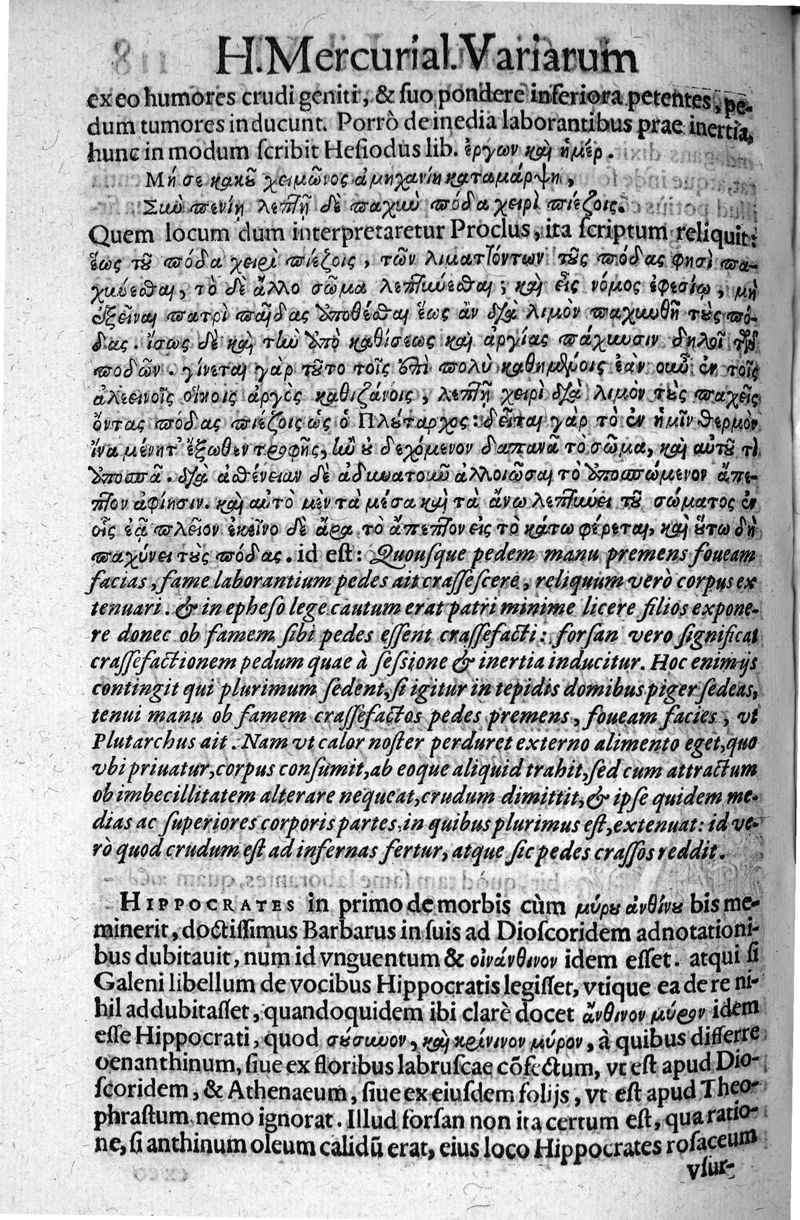 H. Mercurial. Variarum
ex eo humores crudi geniti, & suo pondere inferiora petentes, pe-
dum tumores inducunt. Porrò de inedia laborantibus prae inertia,
hunc in modum scribit Hesiodus lib. ἐργων καὶ ἡμέρ.
Μή σε κακοῦ χειμῶνος ἀμηχανίη καταμάρψῃ,
Σὺν πενίῃ λεπτῇ δὲ παχὺν πόδα χειρὶ πιέζοις.
Quem locum dum interpretaretur Proclus, ita scriptum reliquit:
ἕως τοῦ πόδα χειρὶ πιέζοις, τῶν λιματτόντων τοὺς πόδας φησὶ πα-
χύνεσθαι, τὸ δὲ ἄλλο σῶμα λεπτύνεσθαι; καὶ εἰς νόμος ἐφεσίῳ, μὴ
ἐξεῖναι πατρὶ παῖδας ὑποθέσθαι ἕως ἂν διὰ λιμὸν παχυνθῇ τοὺς πό-
δας. ἴσως δὲ καὶ τὴν ὑπὸ καθίσεως καὶ ἀργίας πάχυνσιν δηλοῖ τῶν
ποδῶν. γίνεται γὰρ τοῦτο τοῖς ἐπὶ πολὺ καθημένοις ἐὰν οὖν ἐν τοῖς
ἀλεεινοῖς οἴκοις ἀργὸς καθιζάνοις, λεπτῇ χειρὶ διὰ λιμὸν τοὺς παχεῖς
ὄντας πόδας πιέζοις ὡς ὁ Πλούταρχος: δεῖται γὰρ τὸ ἐν ἡμῖν θερμὸν
ἵνα μένῃτ' ἔξωθεν τροφῆς, ἣν οὐ δεχόμενον δαπανᾶ τὸ σῶμα, καὶ αὐτοῦ τὶ
ὑποσπᾶ. διὰ ἀσθένειαν δὲ ἀδυνατοῦν ἀλλοιῶσαι τὸ ὑποσπώμενον ἄπε-
πτον ἀφίησιν. καὶ αὐτὸ μὲν τὰ μέσα καὶ τὰ ἄνω λεπτύνει τοῦ σώματος ἐν
οἷς ἐᾶ πλεῖον ἐκεῖνο δὲ ἄρα τὸ ἄπεπτον εἰς τὸ κάτω φέρεται, καὶ οὕτω δὴ
παχύνει τοὺς πόδας. id est: Quousque pedem manu premens foueam
facias, fame laborantium pedes ait crassescere, reliquum verò corpus ex
tenuari. & in epheso lege cautum erat patri minime licere filios expone-
re donec ob famem sibi pedes essent crassefacti: forsan vero significat
crassefactionem pedum quae à sessione & inertia inducitur. Hoc enim ijs
contingit qui plurimum sedent, si igitur in tepidis domibus piger sedeas,
tenui manu ob famem crassefactos pedes premens, foueam facies, vt
Plutarchus ait. Nam vt calor noster perduret externo alimento eget, quo
vbi priuatur, corpus consumit, ab eoque aliquid trahit, sed cum attractum
ob imbecillitatem alterare nequeat, crudum dimittit, & ipse quidem me-
dias ac superiores corporis partes, in quibus plurimus est, extenuat: id ve-
rò quod crudum est ad infernas fertur, atque sic pedes crassos reddit.
HIPPOCRATES in primo de morbis cùm μύρου ἀνθίνου bis me-
minerit, doctissimus Barbarus in suis ad Dioscoridem adnotationi-
bus dubitauit, num id vnguentum & οἰνάνθινον idem esset. atqui si
Galeni libellum de vocibus Hippocratis legisset, vtique ea de re ni-
hil addubitasset, quandoquidem ibi clarè docet ἄνθινον μύρον idem
esse Hippocrati, quod σούσινον, καὶ κρίνινον μύρον, à quibus differre
oenanthinum, siue ex floribus labruscae cõfectum, vt est apud Dio-
scoridem, & Athenaeum, siue ex eiusdem folijs, vt est apud Theo-
phrastum nemo ignorat. Illud forsan non ita certum est, qua ratio-
ne, si anthinum oleum calidũ erat, eius loco Hippocrates rosaceum
vsur-